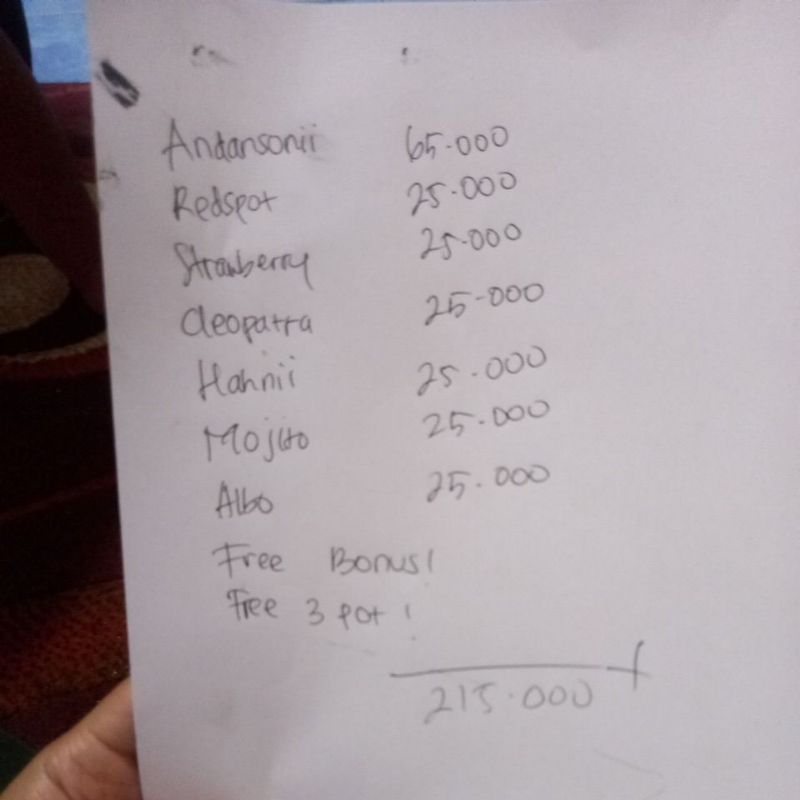 Andansonii 65.000
Redspot 25.000
Strawberry 25.000
Cleopatra 25-000
Hahnii 25.000
Mojito 25.000
Albo 25.000
Free Bonus!
Free 3 pot!
+
215.000